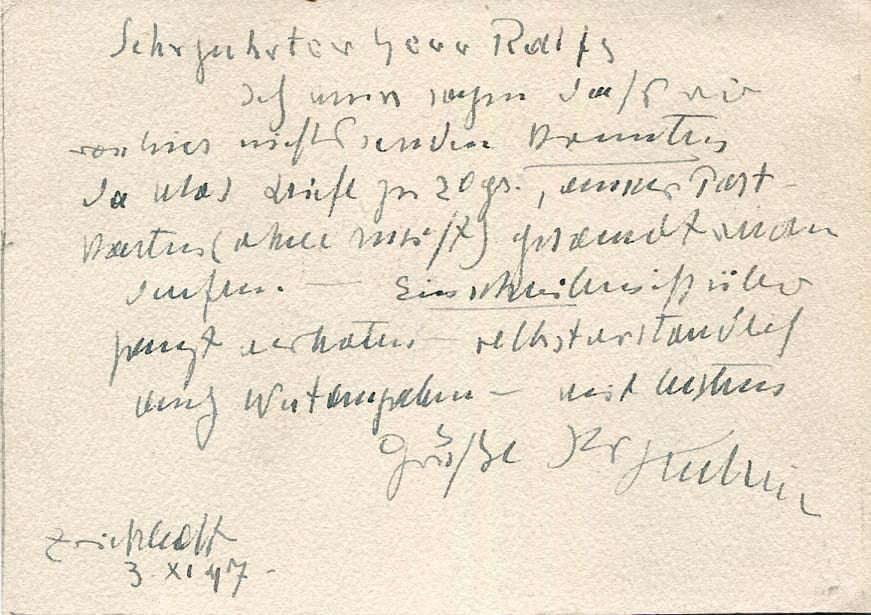 Sehr geehrter Herr Rolfs
Ich muss sagen daß wir
von hier nicht senden konnten
da blos Briefe zu 20 gr., ausser Post-
karten (ohne ) gesandt werden
durfen. — Einschreiben ist über
haupt verboten — selbstverständlich
auch Wertangaben — mit besten
Grüßen Ihr Kubin
Zwickledt
3. XI 47.